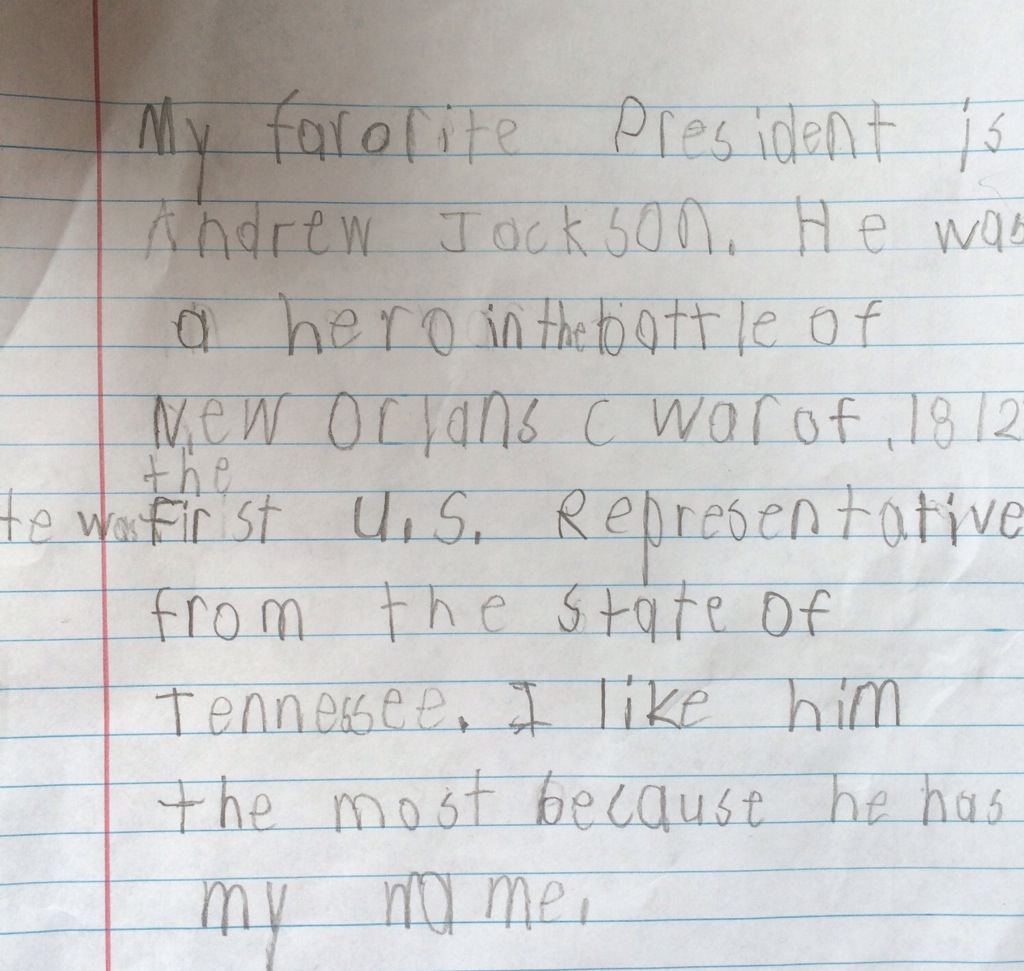 My favorite President is
Andrew Jackson. He was
a hero in the battle of
New Orlans ( war of .1812
the
He was First U.S. Representative
from the state of
Tennessee. I like him
the most because he has
my name.